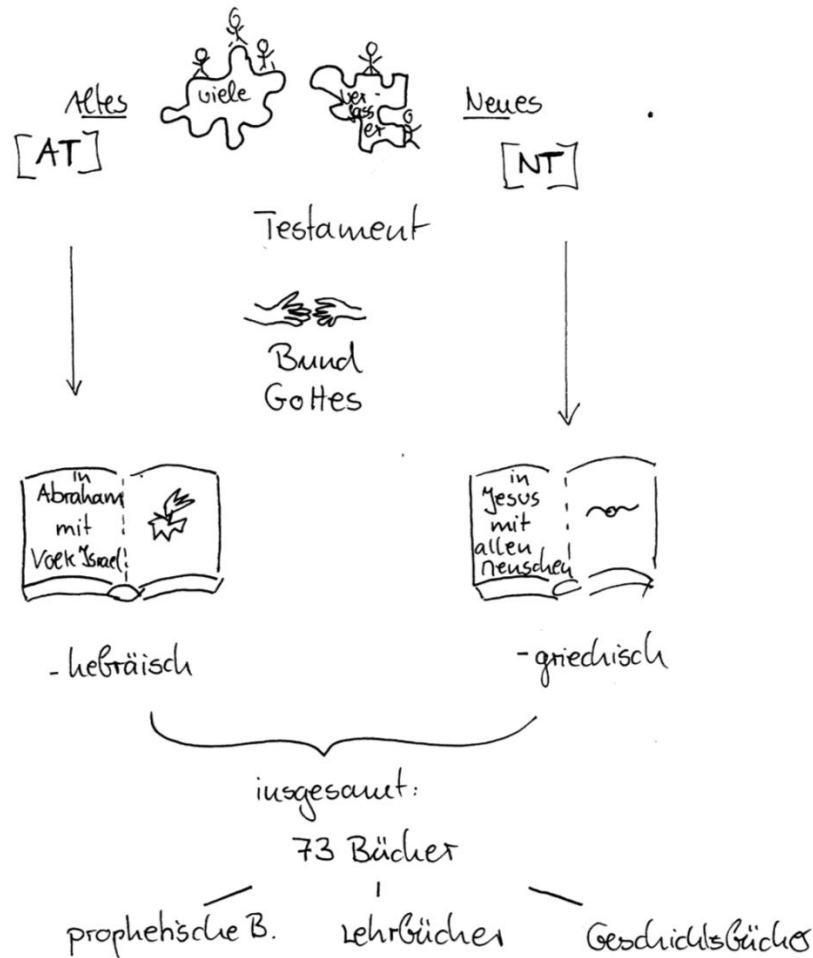 Altes
viele
ver-
fass
er
Neues
[AT]
[NT]
Testament
Bund
Gottes
in
Abraham
mit
Volk Israel
in
Jesus
mit
allen
Menschen
- hebräisch
- griechisch
insgesamt:
73 Bücher
prophetische B.
Lehrbücher
Geschichtsbücher